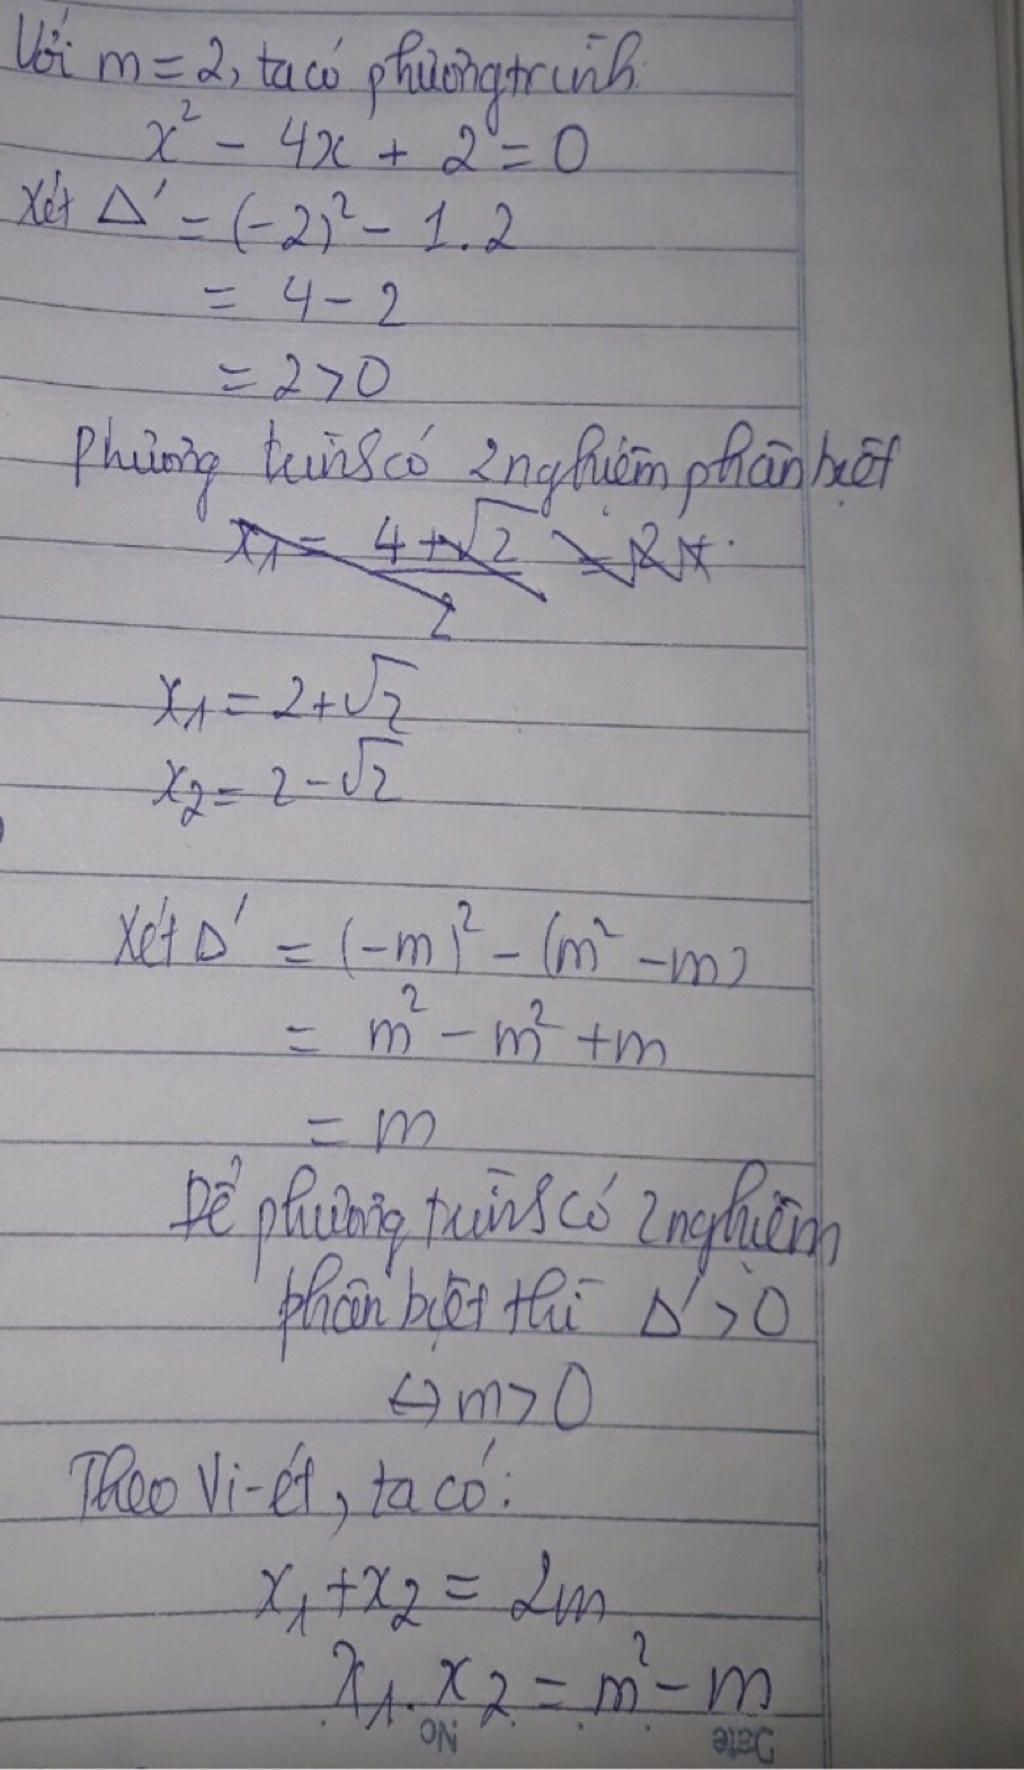 Với m = 2, ta có phương trình:
x² - 4x + 2 = 0
Xét Δ' = (-2)² - 1.2
= 4 - 2
= 2 > 0
Phương trình có 2 nghiệm phân biệt
x₁ = (4 + √2)/2
x₁ = 2 + √2
x₂ = 2 - √2
Xét Δ' = (-m)² - (m² - m)
= m² - m² + m
= m
Để phương trình có 2 nghiệm
phân biệt thì Δ' > 0
⇔ m > 0
Theo Vi-ét, ta có:
x₁ + x₂ = 2m
x₁ . x₂ = m² - m
No Date